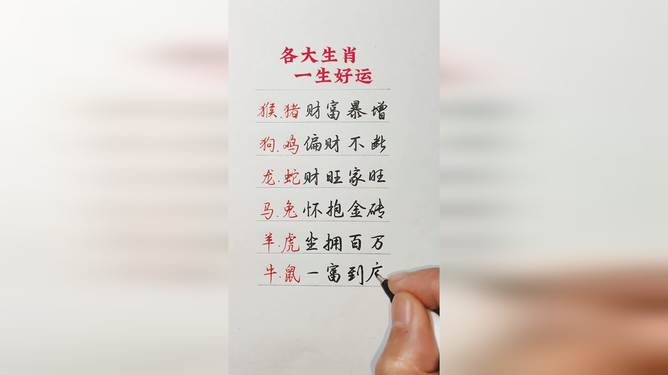 各大生肖
一生好运
猴.猪财富暴增
狗.鸡偏财不断
龙.蛇财旺家旺
马.兔怀抱金砖
羊.虎坐拥百万
牛.鼠一富到